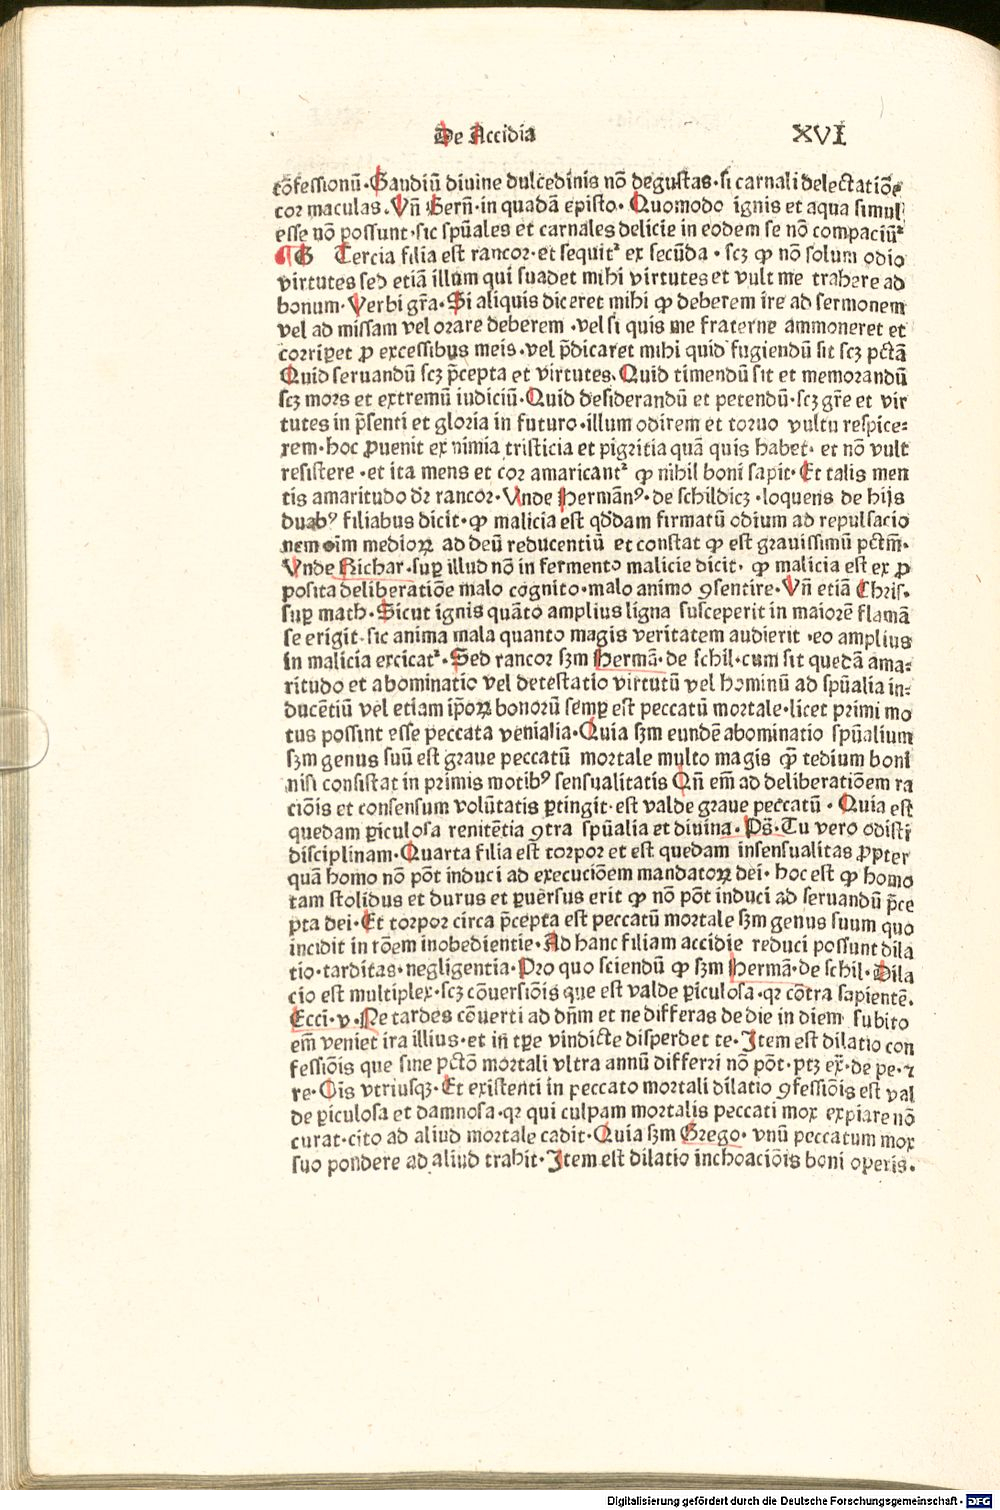 De Accidia XVI
cōfessionū·Gaudiū diuine dulcedinis nō degustas·si carnali delectatiōe
cor maculas.Vn̄ Bern̄·in quadā episto·Quomodo ignis et aqua simul
esse nō possunt·sic spūales et carnales delicie in eodem se nō compaciūꝉ
¶ G Tercia filia est rancor·et sequitꝉ ex secūda·scꝫ ꝙ nō solum odio
virtutes sed etiā illum qui suadet mihi virtutes et vult me trahere ad
bonum·Verbi gr̄a·Si aliquis diceret mihi ꝙ deberem ire ad sermonem
vel ad missam vel orare deberem·vel si quis me fraterne ammoneret et
corriꝑet ꝓ excessibus meis·vel p̄dicaret mihi quid fugiendū sit scꝫ pctā
Quid seruandū scꝫ p̄cepta et virtutes.Quid timendū sit et memorandū
scꝫ mors et extremū iudiciū·Quid desiderandū et petendū·scꝫ gr̄e et vir
tutes in p̄senti et gloria in futuro·illum odirem et toruo vultu respice⸗
rem·hoc ꝓuenit ex nimia tristicia et pigritia quā quis habet·et nō vult
resistere·et ita mens et cor amaricantꝉ ꝙ nihil boni sapit·Et talis men
tis amaritudo dr̄ rancor·Vnde Hermānꝰ·de schildicꝫ·loquens de hijs
duabꝰ filiabus dicit·ꝙ malicia est qd̄dam firmatū odium ad repulsacio
nem oīm medioꝝ ad deū reducentiū et constat ꝙ est grauissimū pctm̄·
Vnde Richar·suꝑ illud nō in fermento malicie dicit·ꝙ malicia est ex ꝓ
posita deliberatiōe malo cognito·malo animo ꝯsentire·Vn̄ etiā Chris⸗
suꝑ math·Sicut ignis quāto amplius ligna susceperit in maiorē flamā
se erigit·sic anima mala quanto magis veritatem audierit·eo amplius
in malicia excicatꝉ·Sed rancor sꝫm Hermā·de schil·cum sit quedā ama⸗
ritudo et abominatio vel detestatio virtutū vel hominū ad spūalia in⸗
ducētiū vel etiam ip̄oꝝ bonorū semꝑ est peccatū mortale·licet primi mo
tus possint esse peccata venialia·Quia sꝫm eundē abominatio spūalium
sꝫm genus suū est graue peccatū mortale multo magis ꝙ̄ tedium boni
nisi consistat in primis motibꝰ sensualitatis Qn̄ em̄ ad deliberatiōem ra
ciōis et consensum volūtatis ꝑtingit·est valde graue peccatū·Quia est
quedam ꝑiculosa renitētia ꝯtra spūalia et diuina·Ps̄·Tu vero odisti
disciplinam·Quarta filia est torpor et est quedam insensualitas ꝓpter
quā homo nō pōt induci ad execuciōem mandatoꝝ dei·hoc est ꝙ homo
tam stolidus et durus et ꝑuersus erit ꝙ nō pōt induci ad seruandū p̄ce
pta dei·Et torpor circa p̄cepta est peccatū mortale sꝫm genus suum quo
incidit in rōem inobedientie·Ad hanc filiam accidie reduci possunt dila
tio·tarditas·negligentia·Pro quo sciendū ꝙ sꝫm Hermā·de schil·Dila
cio est multiplex·scꝫ cōuersiōis que est valde ꝑiculosa·qꝛ cōtra sapientē·
Ecci·v·Ne tardes cōuerti ad dn̄m et ne differas de die in diem subito
em̄ veniet ira illius·et in tꝑe vindicte disperdet te·Item est dilatio con
fessiōis que sine pctō mortali vltra annū differri nō pōt·ptꝫ ex̄·de pe·⁊
re·Oīs vtriusqꝫ·Et existenti in peccato mortali dilatio ꝯfessiōis est val
de ꝑiculosa et damnosa·qꝛ qui culpam mortalis peccati mox expiare nō
curat·cito ad aliud mortale cadit·Quia sꝫm Grego·vnū peccatum mox
suo pondere ad aliud trahit·Item est dilatio inchoaciōis boni operis.
Digitalisierung gefördert durch die Deutsche Forschungsgemeinschaft - DFG